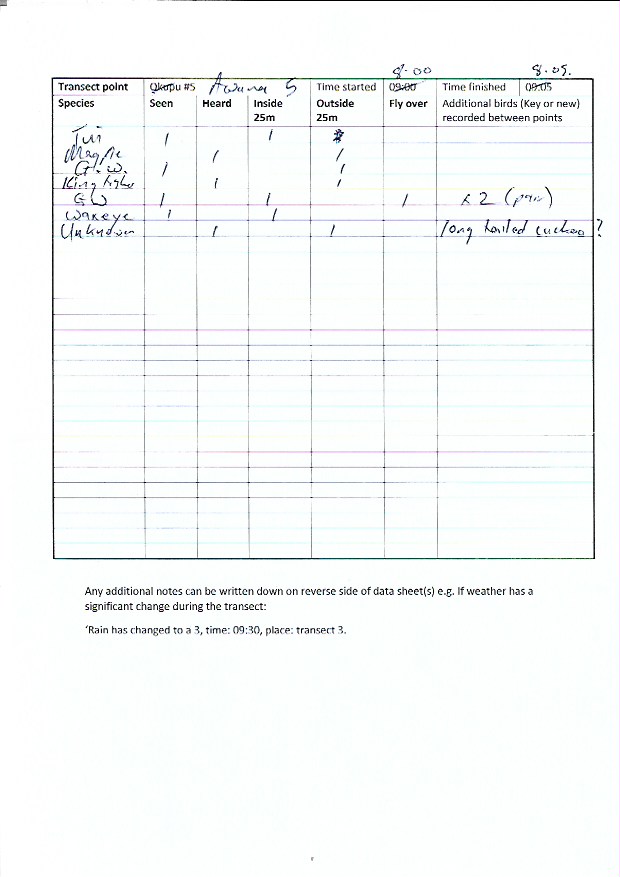 8.00 8.05.
Transect point Okupu #5 Awana 5 Time started 09:00 Time finished 09:05
Species Seen Heard Inside 25m Outside 25m Fly over Additional birds (Key or new) recorded between points
Tui / /
Magpie / /
G.W. / /
Kingfisher / /
GW / / / x2 (pair)
Waxeye / /
Unknown / / long tailed cuckoo ?
Any additional notes can be written down on reverse side of data sheet(s) e.g. If weather has a
significant change during the transect:
‘Rain has changed to a 3, time: 09:30, place: transect 3.